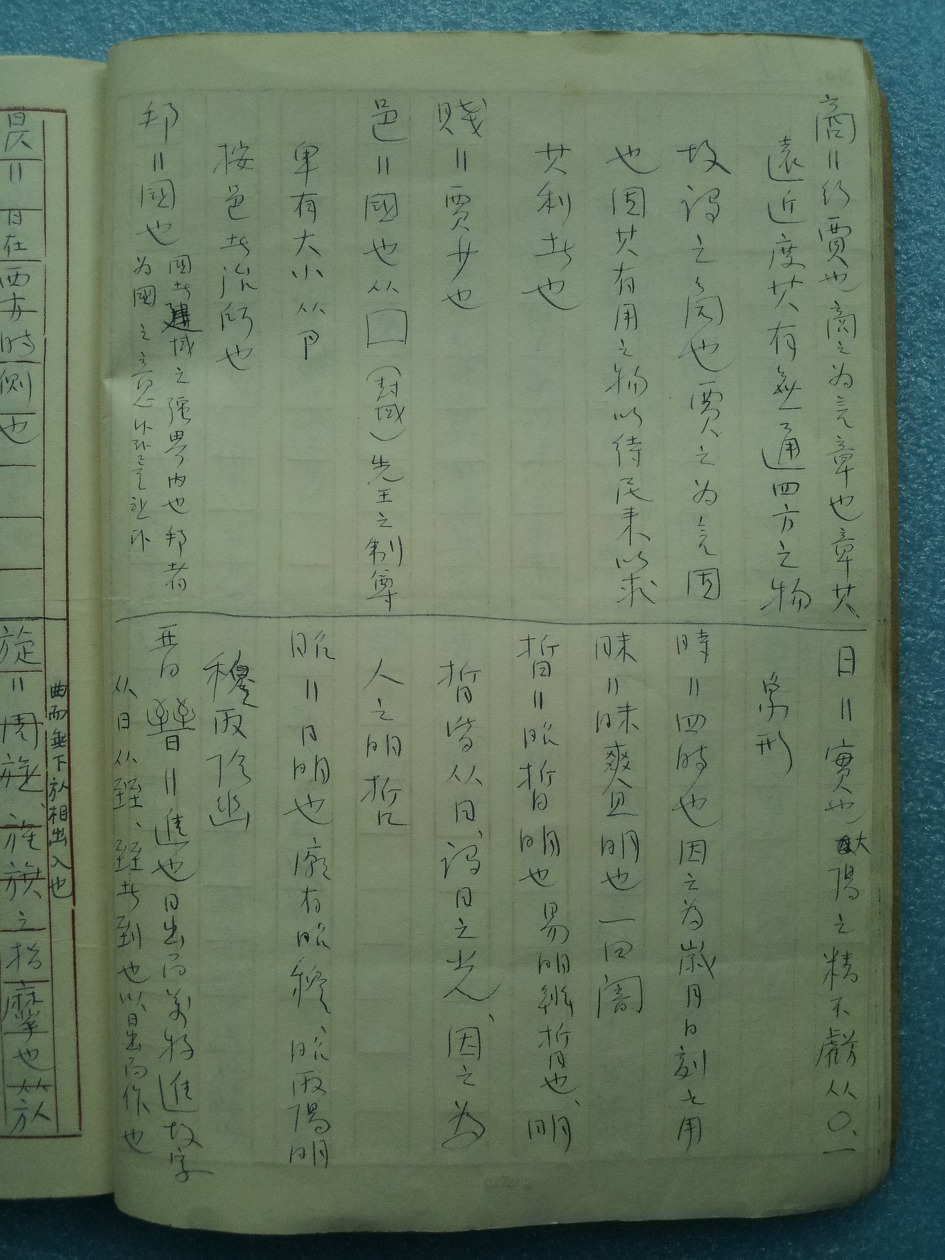 商=行賈也商之為言章也章其
遠近度其有無通四方之物
故謂之商也賈之為言固
也固其有用之物以待民來以求
其利者也
賤=賈少也
邑=國也从囗(封域)先王之制尊
卑有大小从卩
按邑者治所也
邦=國也
國者建域之疆界内也邦者
為國之
日=實也大陽之精不虧从〇、一
象形
時=四時也因之為歲月日刻之用
昧=昧爽且明也一曰闇
晢=昭晢明也易明辯晢也、明
晢皆从日、謂日之光、因之為
人之明哲
昭=日明也廟有昭穆、昭取陽明
穆取陰幽
晋 晉=進也日出而萬物進故字
从日从臸、臸者到也以日出而作也
曲而垂下㫃相出入也
旋=周旋、旌旗之指摩也从㫃
昃=日在西方時側也